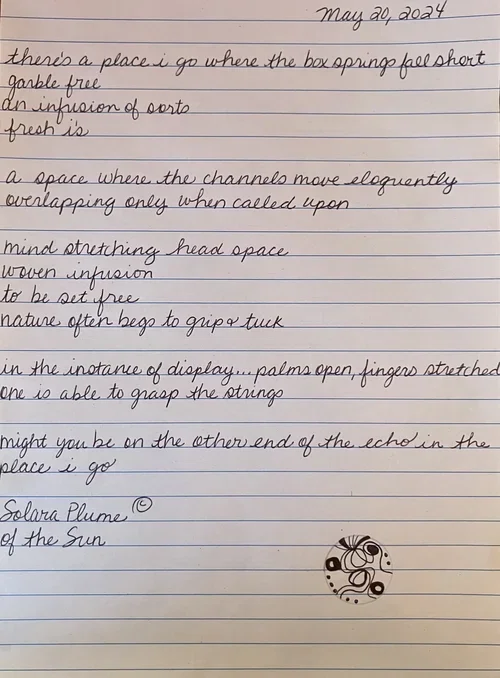 May 20, 2024
there's a place i go where the box springs fall short
garble free
an infusion of sorts
fresh is
a space where the channels move eloquently
overlapping only when called upon
mind stretching head space
woven infusion
to be set free
nature often begs to grip & tuck
in the instance of display... palms open, fingers stretched
one is able to grasp the strings
might you be on the other end of the echo in the
place i go
Solara Plume ©
of the Sun